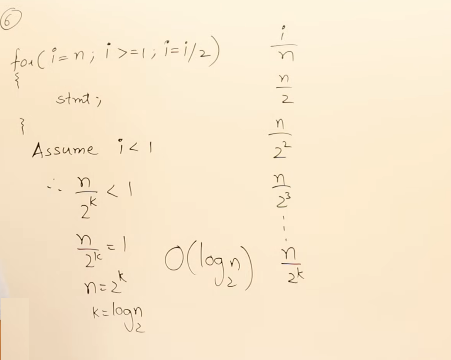 6
for(i=n; i>=1; i=i/2)
{
stmt;
}
Assume i<1
∴ n/2^k < 1
n/2^k = 1
n=2^k
k=log₂n
O(log₂n)
i
n
n/2
n/2²
n/2³
⋮
n/2^k